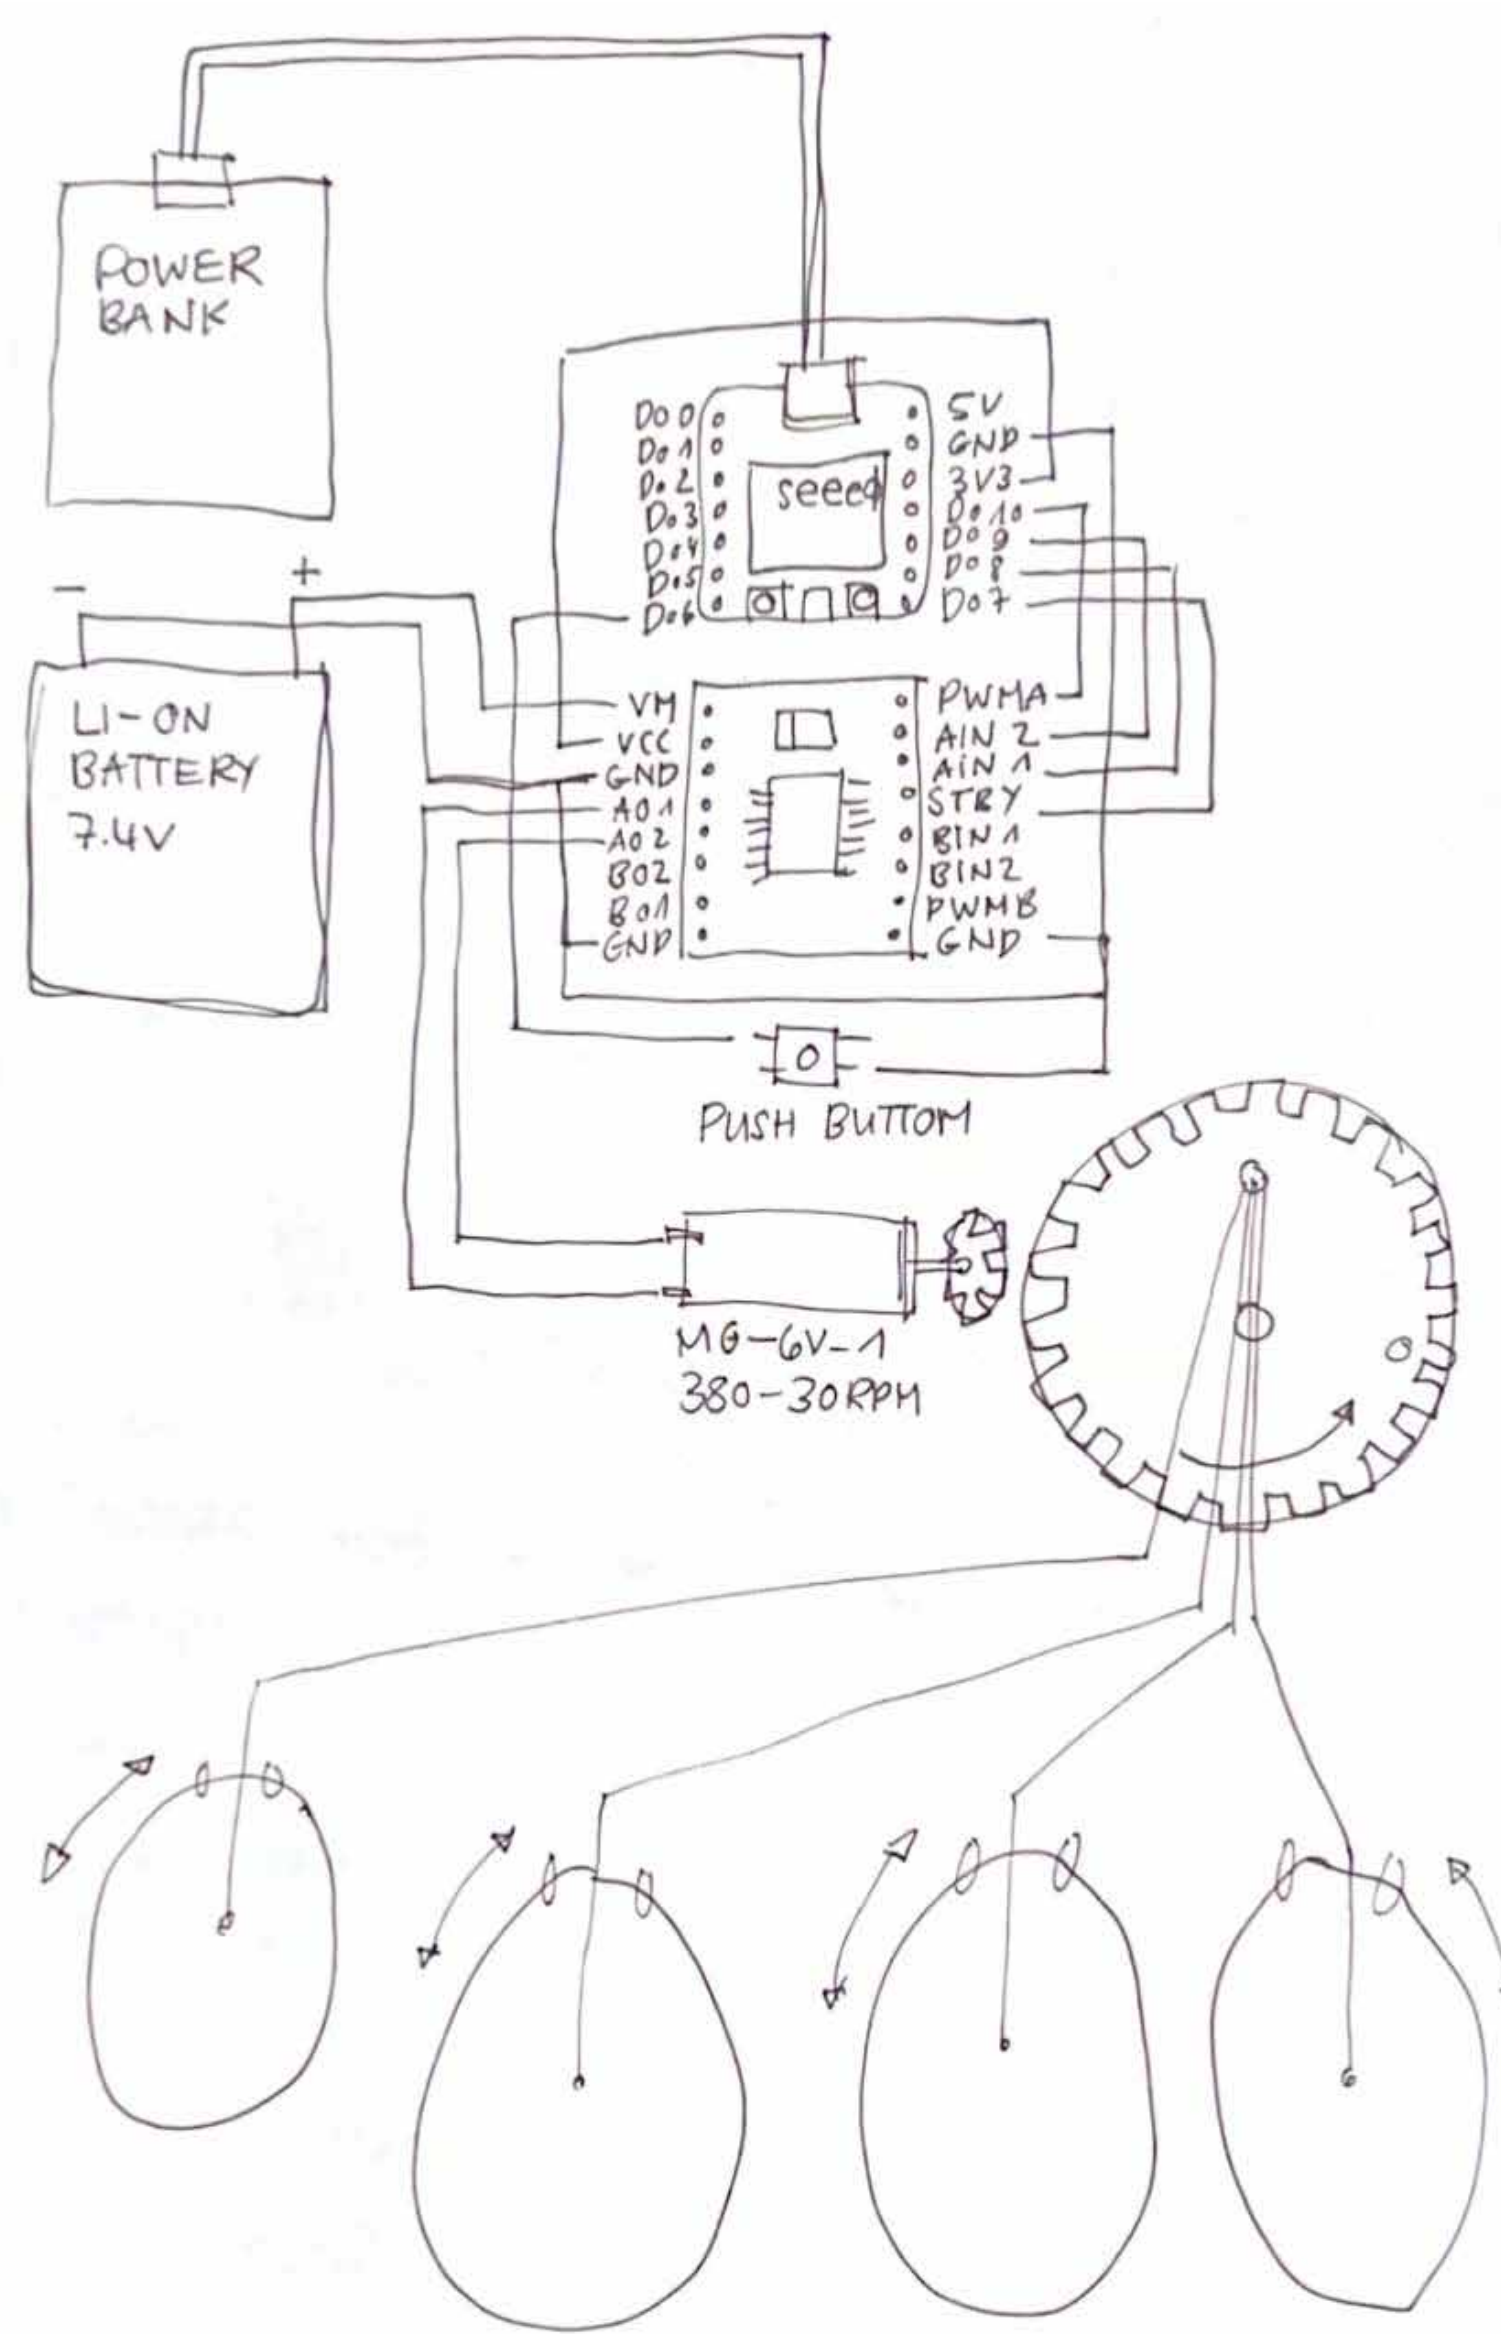 POWER
BANK
D00
D01
D02
D03
D04
D05
D06
seeed
5V
GND
3V3
D010
D09
D08
D07
-
+
LI-ON
BATTERY
7.4V
VM
VCC
GND
A01
A02
B02
B01
GND
PWMA
AIN 2
AIN 1
STBY
BIN 1
BIN2
PWMB
GND
PUSH BUTTOM
MG-6V-1
380-30RPM